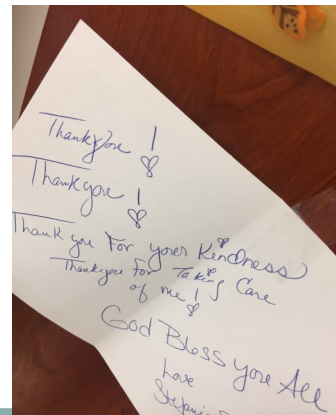 Thank you!
Thank you!
Thank you For your Kindness
Thank you For Taking Care
of me!
God Bless you All
Love